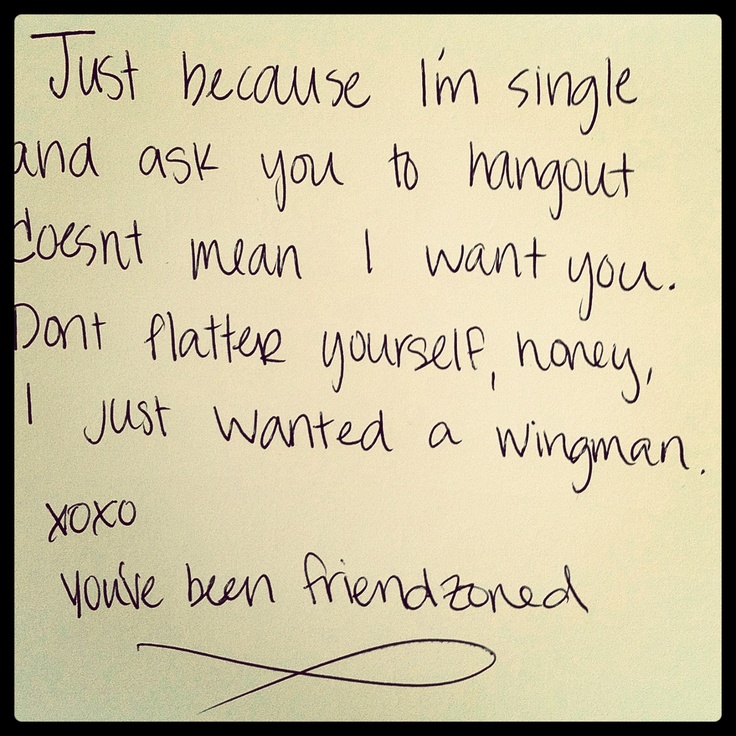 Just because I'm single
and ask you to hangout
doesnt mean I want you.
Dont flatter yourself, honey,
I just wanted a wingman.
xoxo
you've been friendzoned